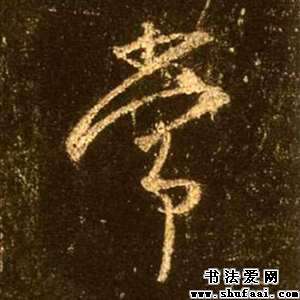 常
书法爱网
www.shufaai.com